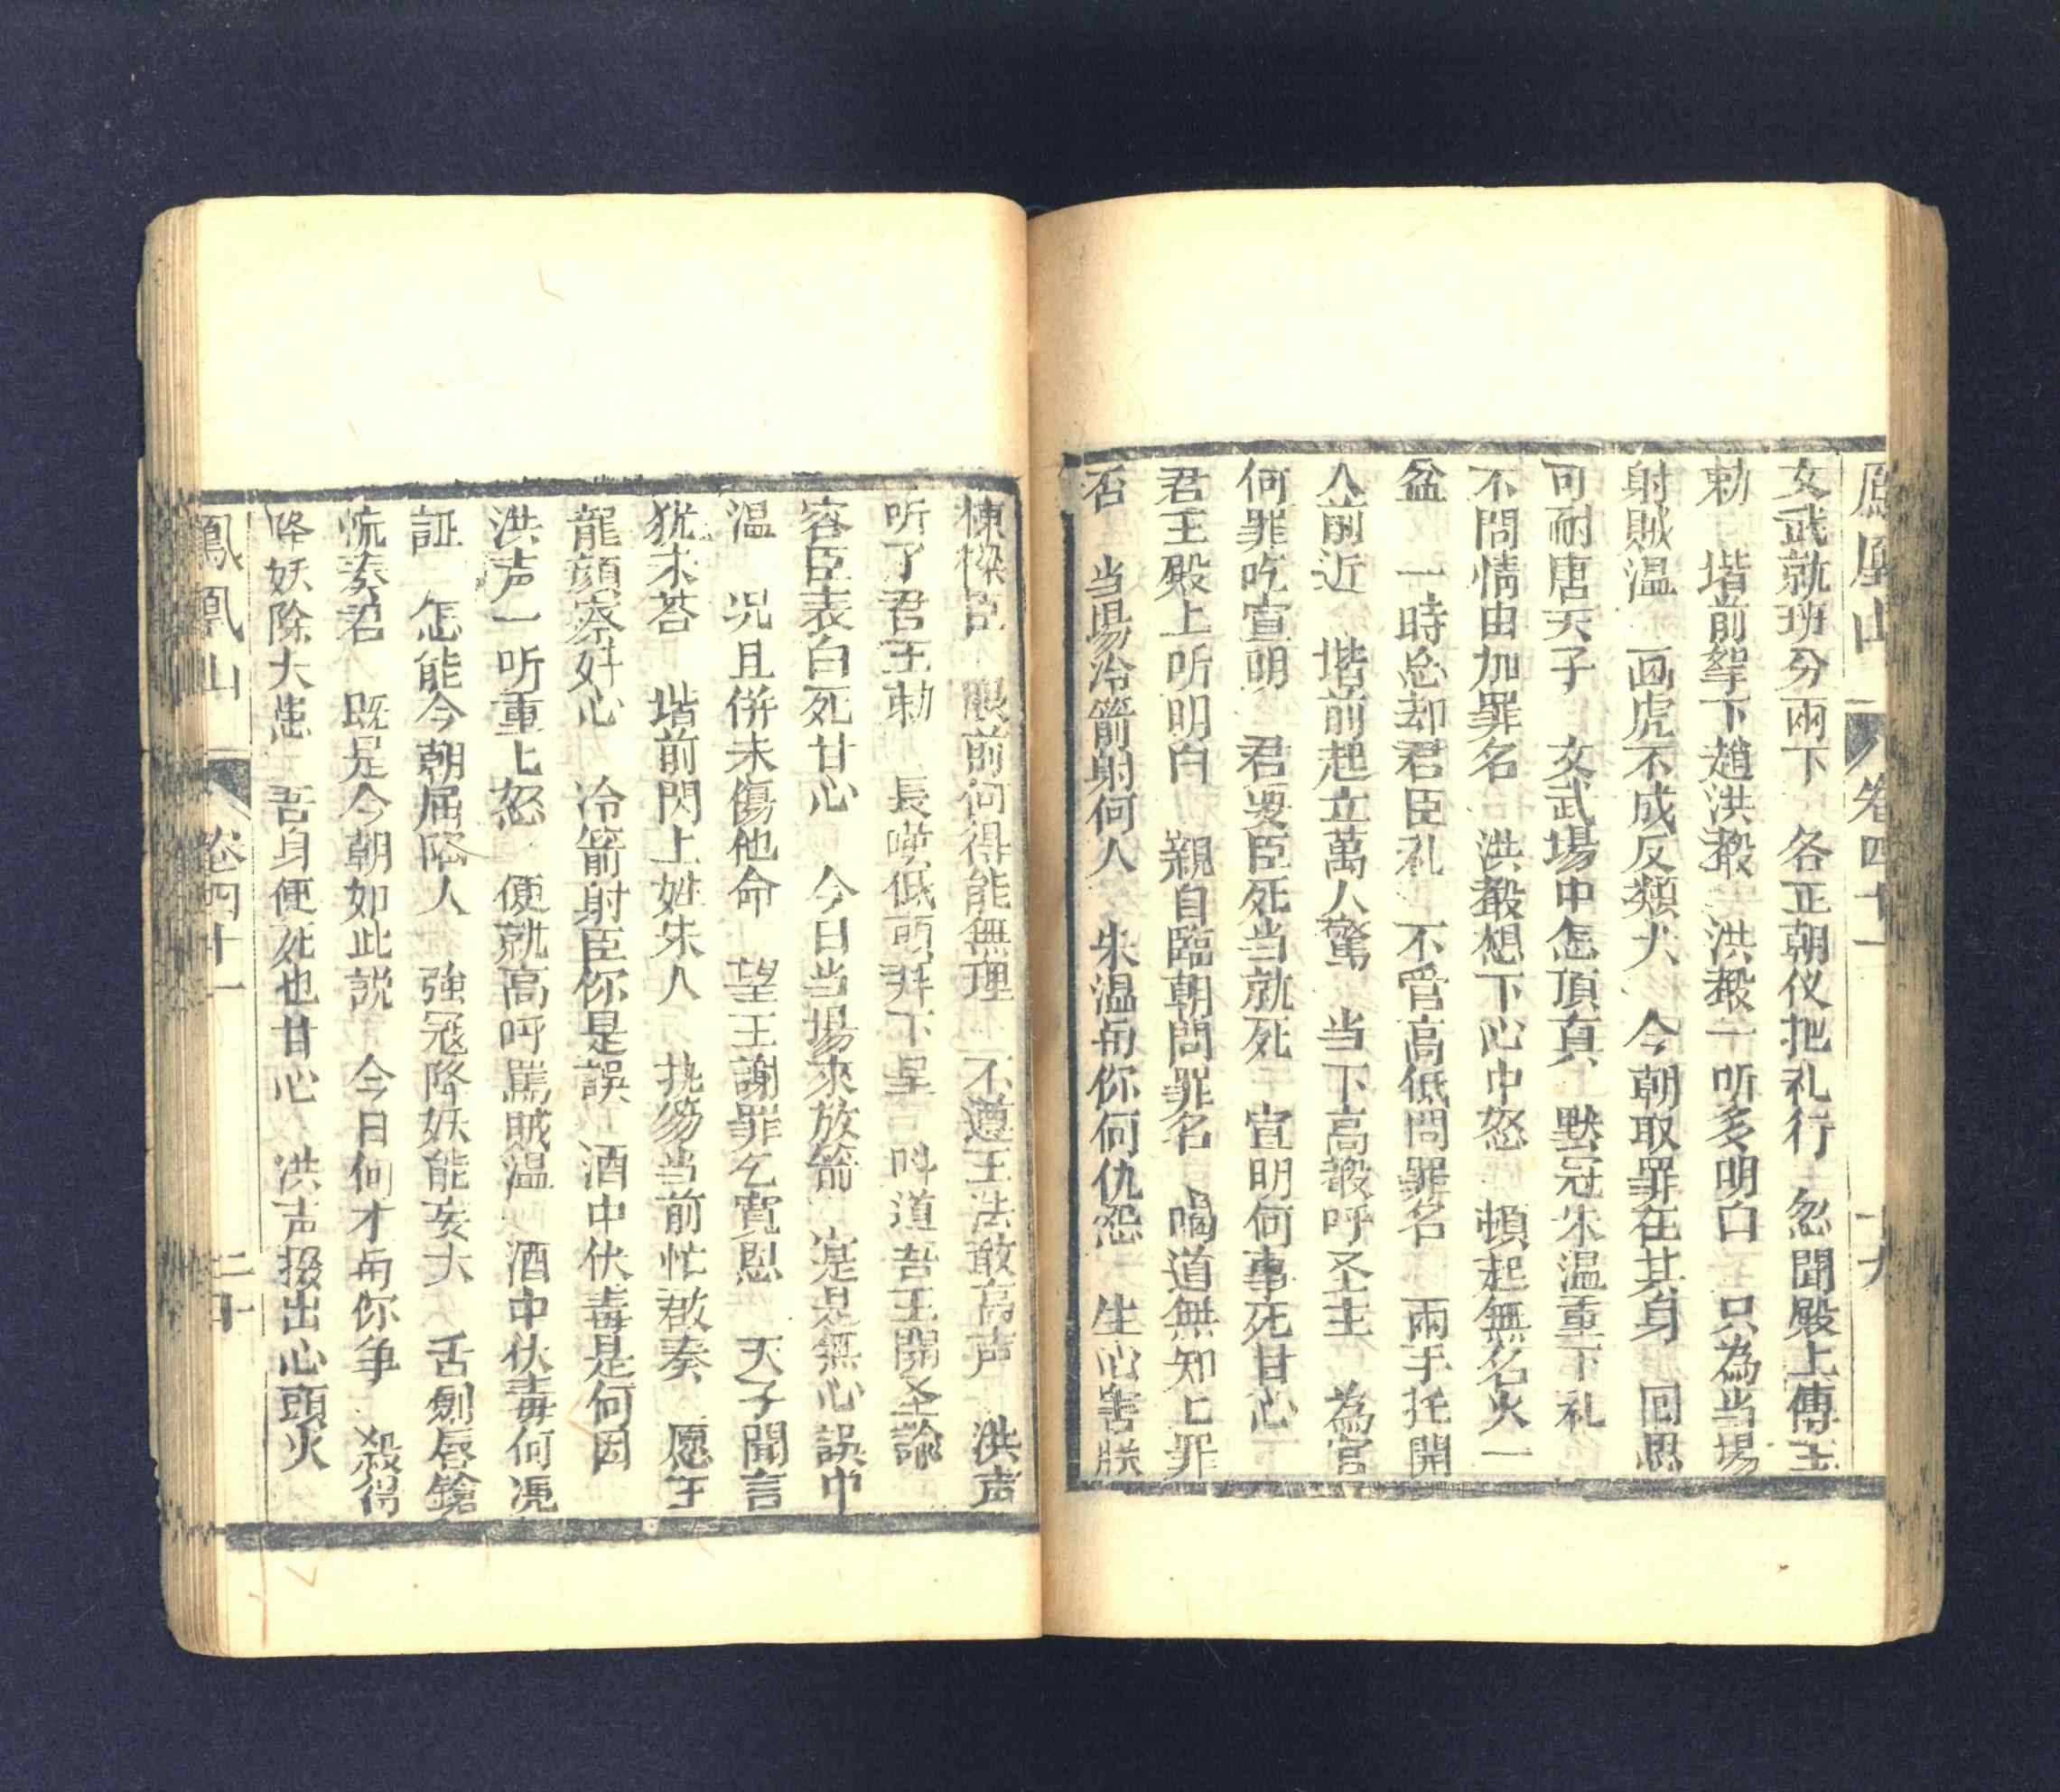 鳳凰山 卷四十一 十九
文武就班分兩下 各正朝仪把礼行 忽聞殿上傳王
勅 堦前拏下趙洪殷 洪殷一听多明白 只為当場
射賊温 画虎不成反類犬 今朝取罪在其身 回思
可耐唐天子 文武場中怎頂真 黙冠朱温重下礼
不問情由加罪名 洪殷想下心中怒 頓起無名火一
盆 一時忘却君臣礼 不管高低問罪名 兩手托開
人前近 堦前起立萬人驚 当下高聲呼圣主 為官
何罪吃宣明 君要臣死当就死 宣明何事死甘心
君王殿上听明白 親自臨朝問罪名 喝道無知上罪
否 当場冷箭射何人 朱温与你何仇怨 生心害朕
棟樑臣 眼前何得能無理 不遵王法敢高声 洪声
听了君王勅 長嘆低頭拜下呈 呌道吾王開圣諭
容臣表白死甘心 今日当場來放箭 寔是無心誤中
温 况且併未傷他命 望王謝罪乞寬恩 天子聞言
犹未荅 堦前閃上姓朱人 执笏当前忙啟奏 愿王
龍顔察奸心 冷箭射臣你是誤 酒中伏毒是何因
洪声一听重上怒 便就高呼罵賊温 酒中伏毒何凴
証 怎能今朝屈陷人 強冦降妖能妄大 舌劍唇鎗
慌奏君 既是今朝如此説 今日何才与你争 殺得
降妖除大患 吾身便死也甘心 洪声掇出心頭火
鳳凰山 卷四十一 二十